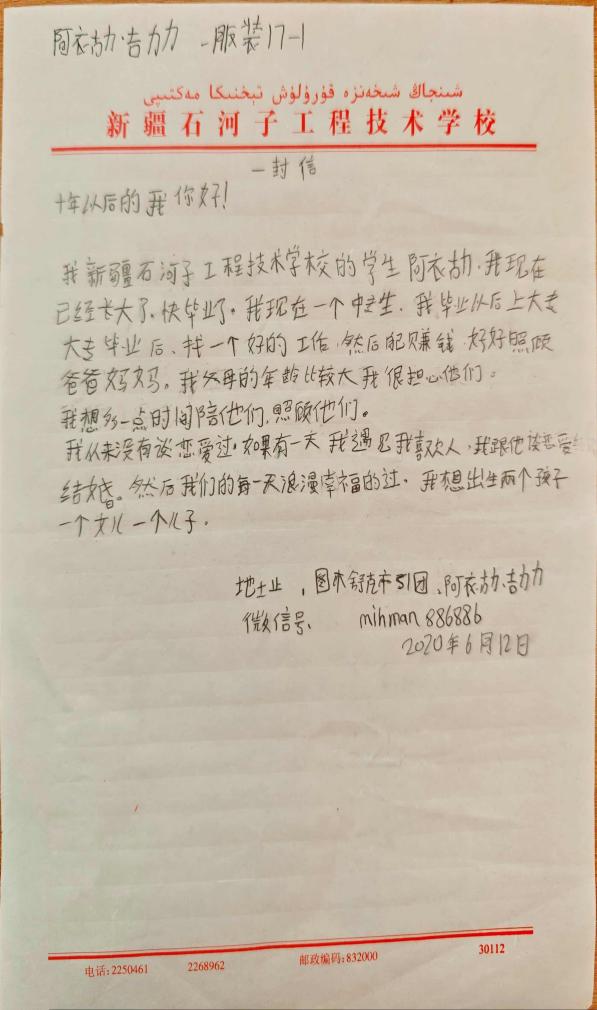 阿衣古力·吉力力 -服装17-1
شىنجاڭ شىخەنزە قۇرۇلۇش تېخنىكا مەكتىپى
新疆石河子工程技术学校
一封信
十年以后的我你好!
我新疆石河子工程技术学校的学生阿衣古力.我现在
已经长大了.快毕业了。我现在一个中专生.我毕业以后上大专
大专毕业后、找一个好的工作.然后 赚钱 好好照顾
爸爸妈妈。我父母的年龄比较大我很担心他们。
我想多一点时间陪他们.照顾他们。
我从来没有谈恋爱过.如果有一天我遇见我喜欢人.我跟他谈恋爱
结婚。然后我们的每一天浪漫幸福的过.我想出生两个孩子
一个女儿一个儿子.
地址,图木舒克市51团、阿衣古力·吉力力
微信号、 mihman886886
2020年6月12日
30112
电话:2250461 2268962 邮政编码:832000